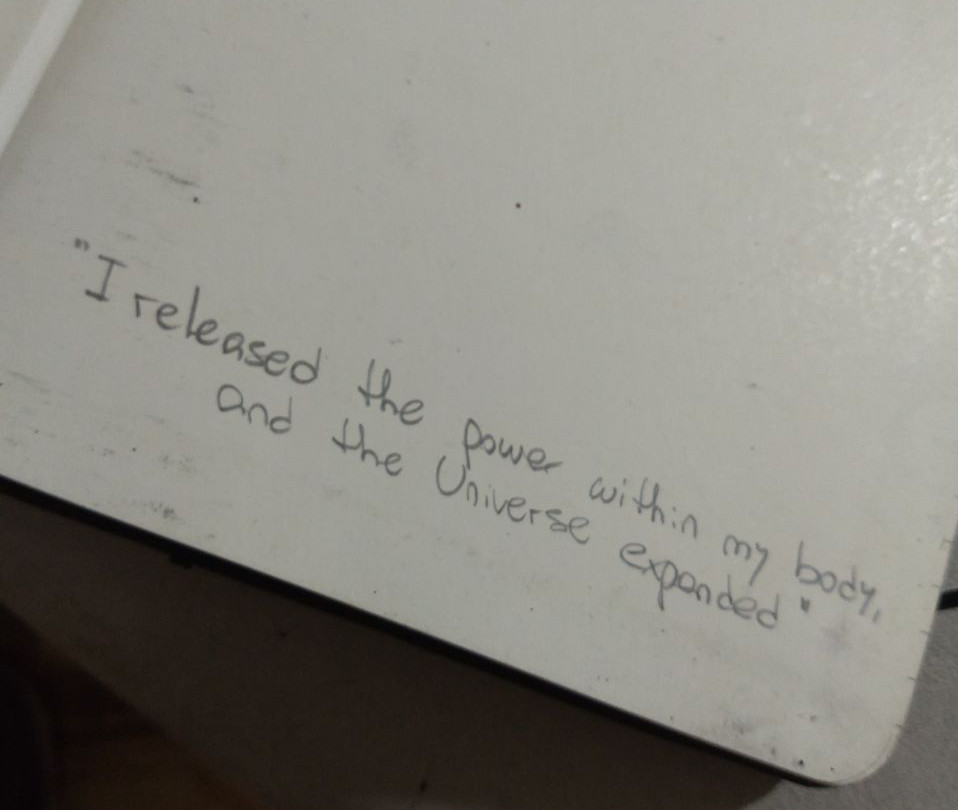 "I released the power within my body,
and the Universe expanded"